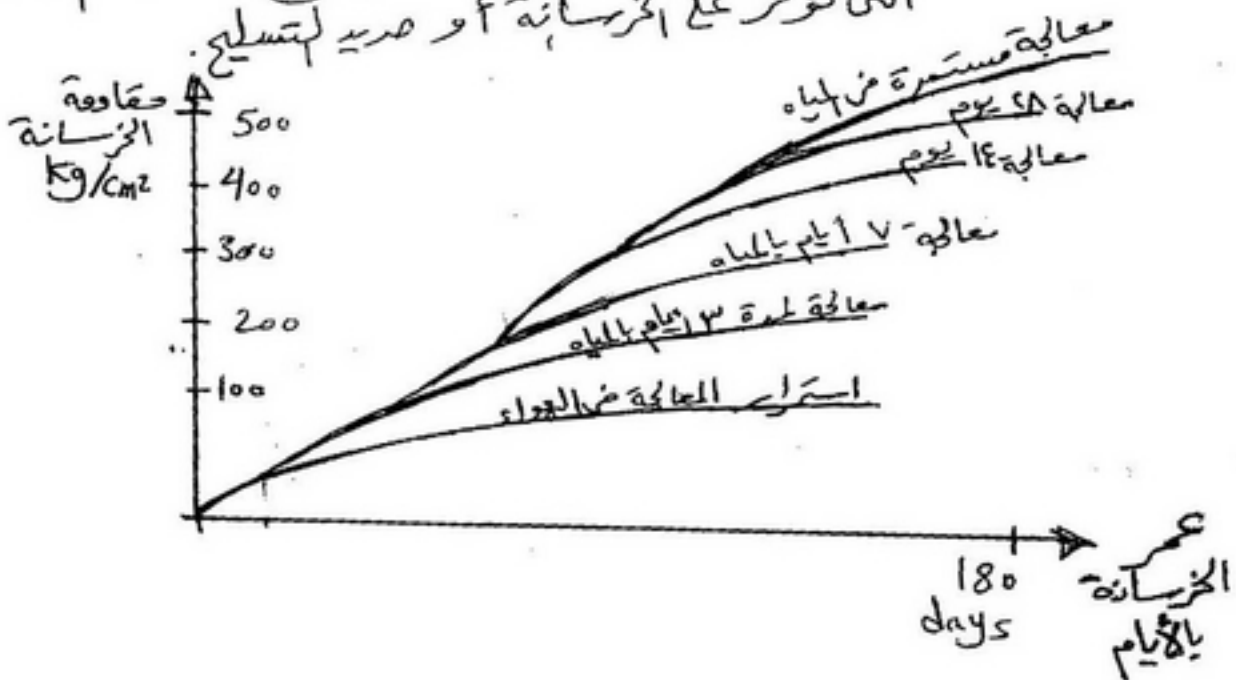 التى تؤثر على الخرسانة أو حديد التسليح.
مقاومة
الخرسانة
kg/cm2
500
400
300
200
100
معالجة مستمرة فى المياه
معالجة ٢٨ يوم
معالجة ١٤ يوم
معالجة ٧ أيام بالمياه
معالجة لمدة ٣ أيام بالمياه
استمرار المعالجة فى الهواء
180
days
عمر
الخرسانة
بالأيام